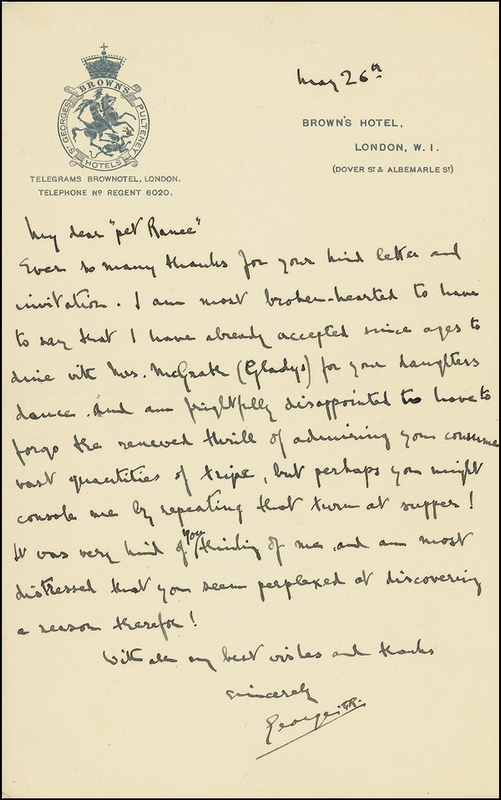 BROWN'S
ST. GEORGES
PULTENEY
HOTELS
TELEGRAMS BROWNOTEL, LONDON.
TELEPHONE Nº REGENT 6020.
May 26th
BROWN'S HOTEL,
LONDON, W. 1.
(DOVER ST & ALBEMARLE ST)
My dear "pet Ranee"
Ever so many thanks for your kind letter and
invitation. I am most broken-hearted to have
to say that I have already accepted since ages to
dine with Mrs. McGrath (Gladys) for your daughters
dance. And am frightfully disappointed to have to
forgo the renewed thrill of admiring you consume
vast quantities of tripe, but perhaps you might
console me by repeating that turn at supper!
It was very kind of you thinking of me, and am most
distressed that you seem perplexed at discovering
a reason therefor!
With all my best wishes and thanks
sincerely
George